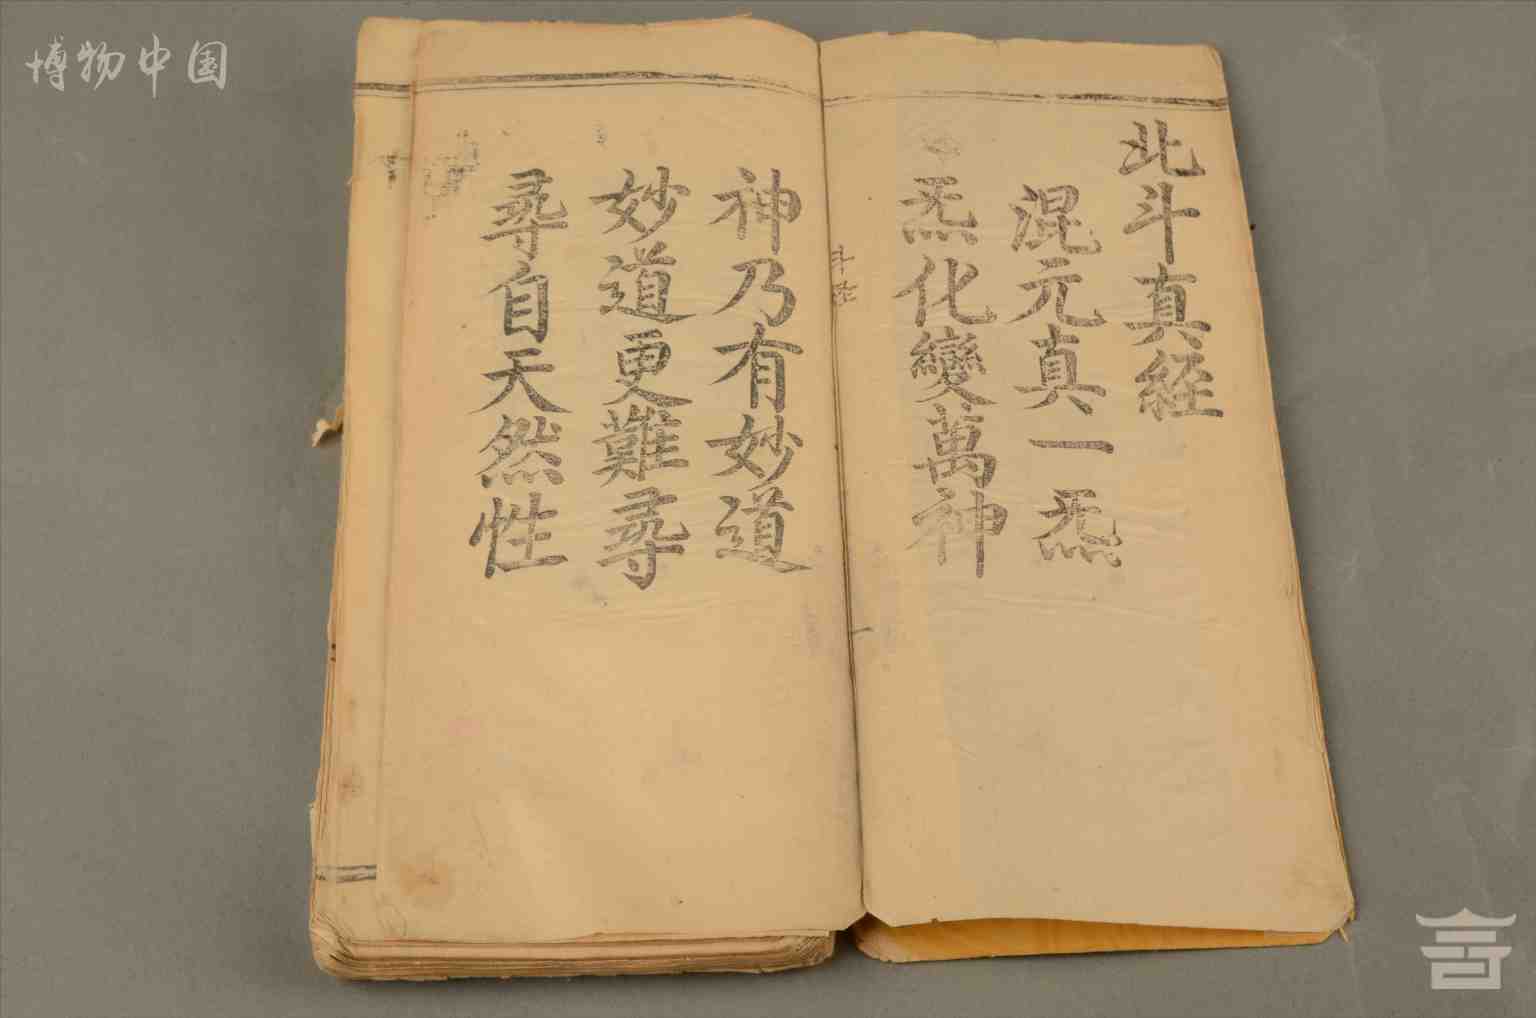 博物中国
北斗真經
混元真一炁
炁化變萬神
神乃有妙道
妙道更難尋
尋自天然性
斗經
一